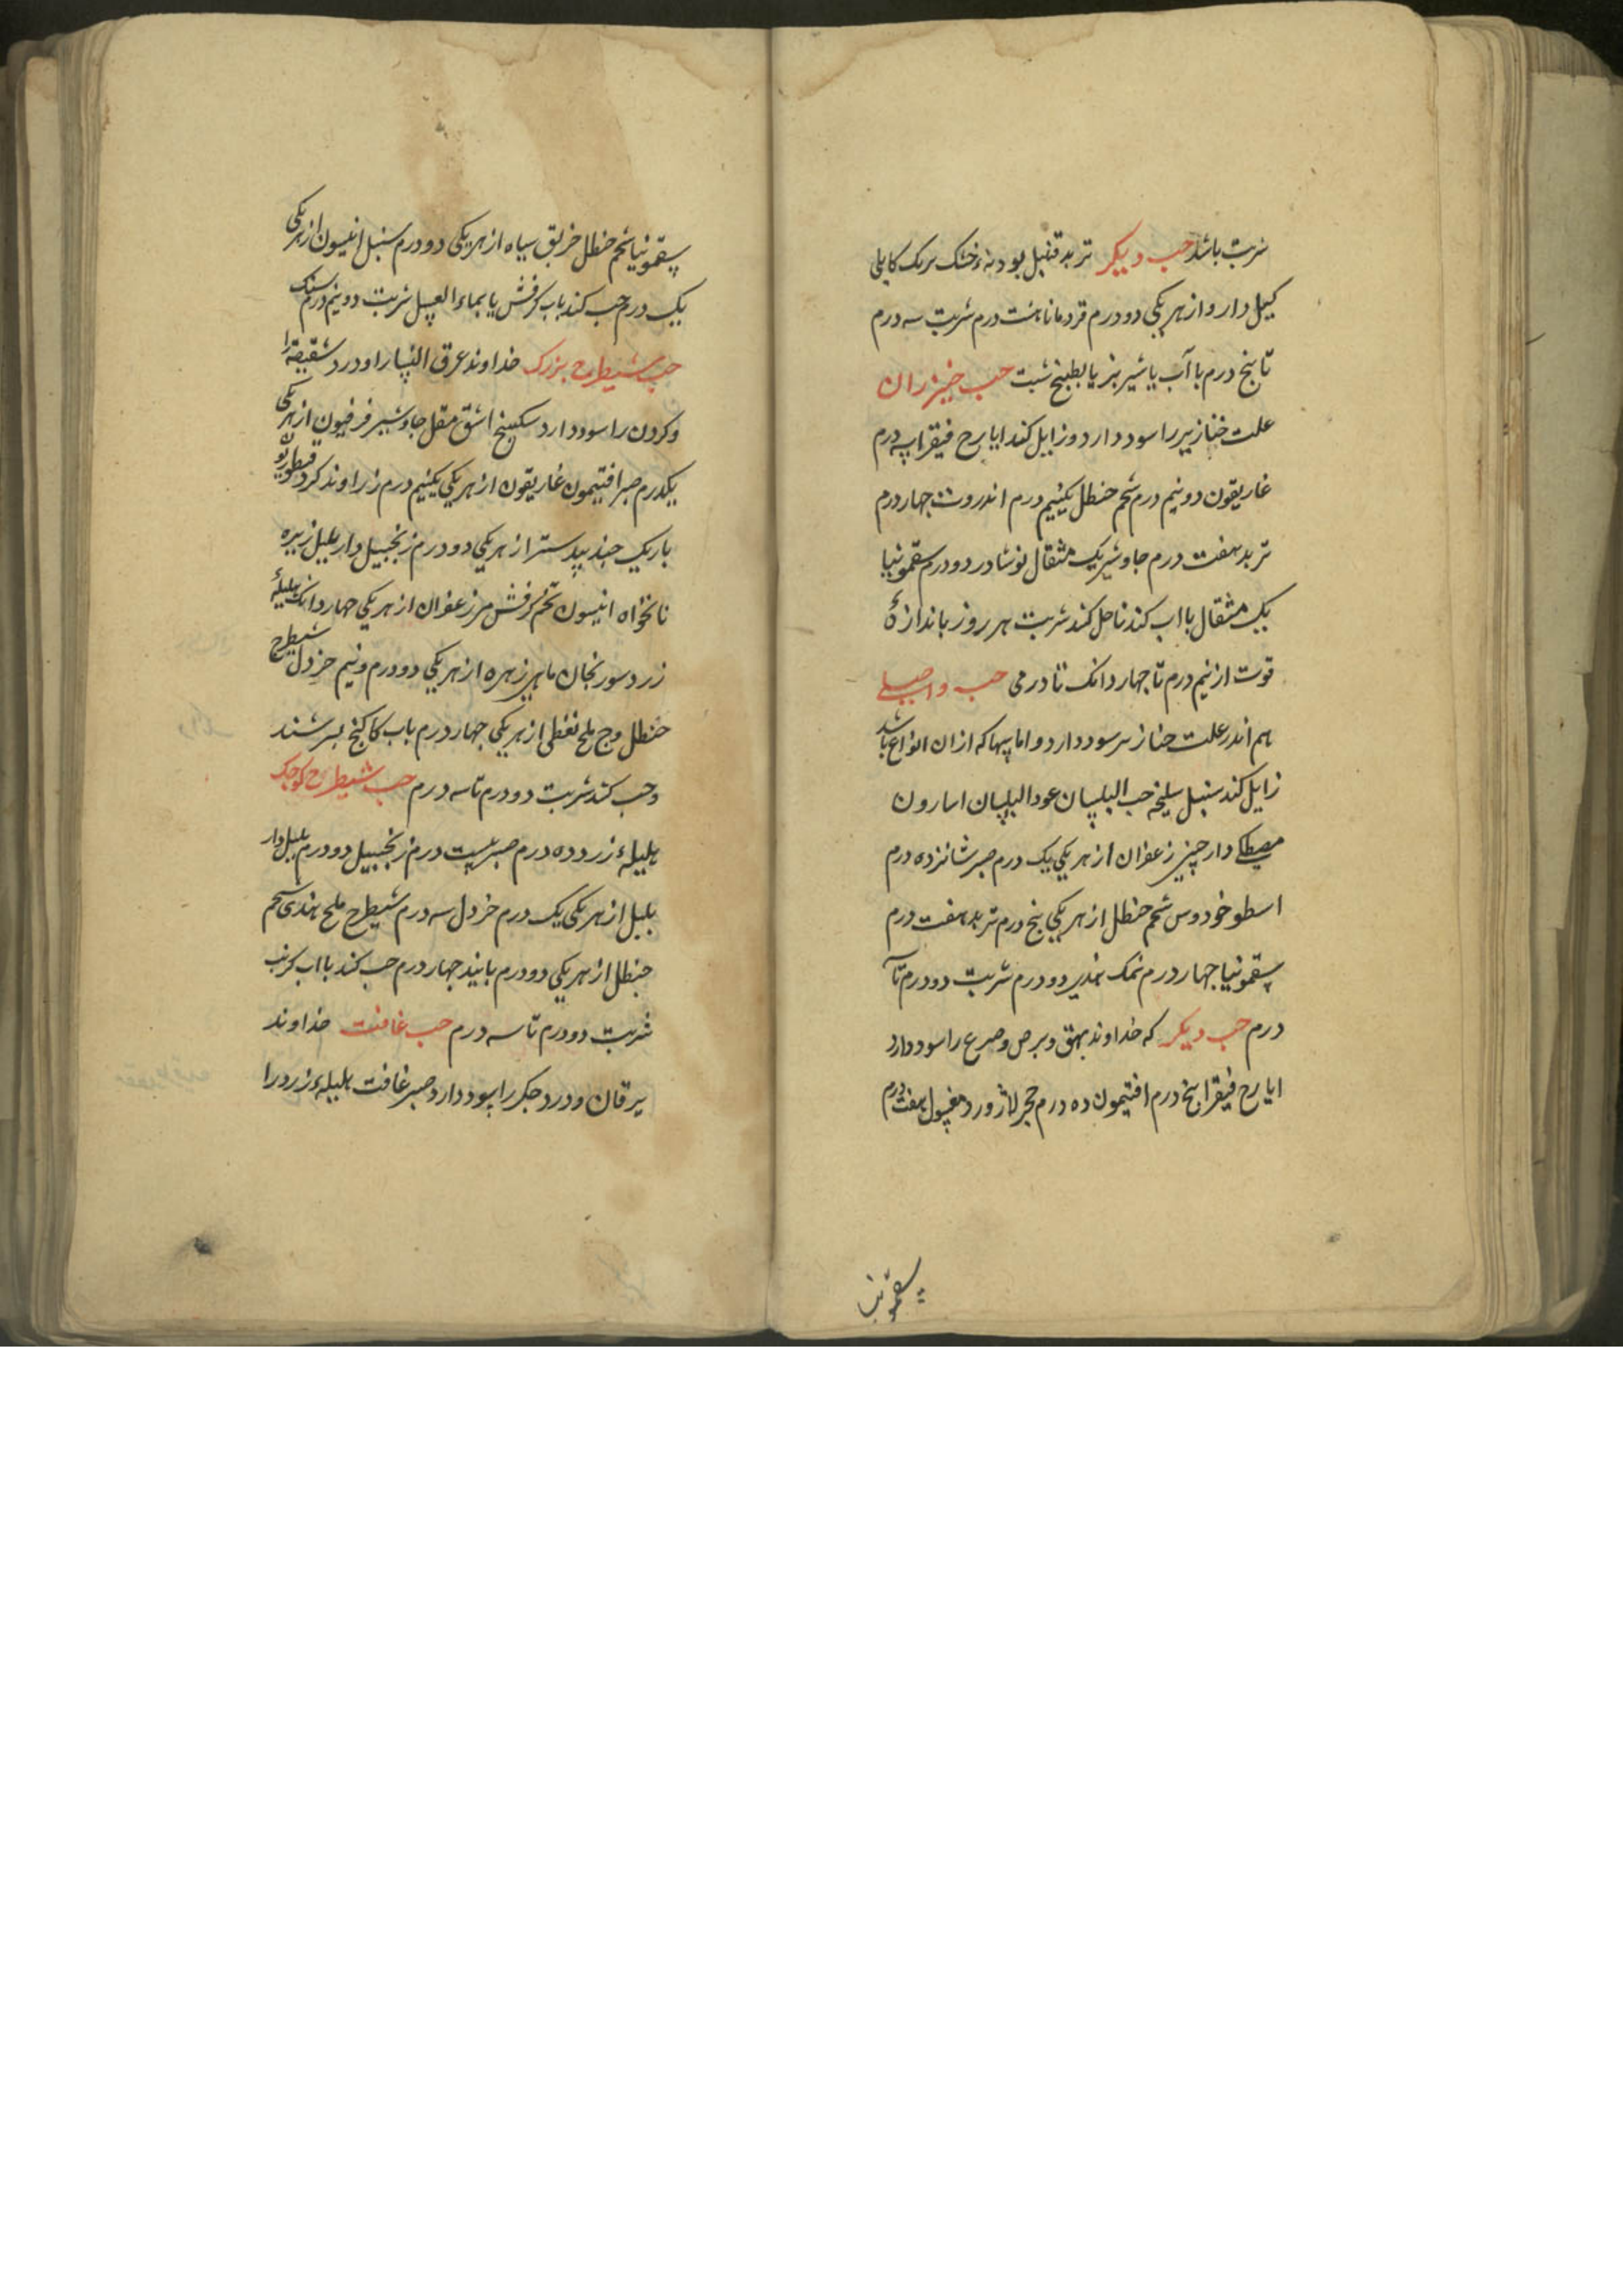 شربت باشد حب دیکر تربد قنبیل بودنهٔ خشک برنک کابلی
کیل دارو از هریکی دو درم قردمانا هشت درم شربت سه درم
تا پنج درم با آب یا شیر بز یا بطبیخ شبت حب خیزران
علت خنازیر را سود دارد و زایل کند ایارج فیقرا سه درم
غاریقون دو نیم درم شحم حنظل یکنیم درم اندروت جهار درم
تربد هفت درم جاوشیر یک مثقال نوشادر دو درم سقمونیا
یک مثقال با اب کندنا حل کند شربت هر روز باندازهٔ
قوت از نیم درم تا جهار دانک تا درمی حب واصلی
هم اندر علت خنازیر سود دارد و اماسها که ازان انواع باشد
زایل کند سنبل سلیخه حب البلسان عود البلسان اسارون
مصطکی دارچینی زعفران از هریکی یک درم صبر شانزده درم
اسطوخودوس شحم حنظل از هریکی پنج درم تربد هفت درم
سقمونیا جهار درم نمک هندی دو درم شربت دو درم تا
درم حب دیکر که خداوند بهق و برص و صرع را سود دارد
ایارج فیقرا پنج درم افتیمون ده درم حجر لاژورد مغسول هفت درم
سقمونیا
سقمونیا شحم حنظل خربق سیاه از هریکی دو درم سنبل انیسون از هریکی
یک درم حب کند باب کرفش یا بماء العسل شربت دو نیم درم سنک
حب شیطرج بزرک خداوند عرق النسا را و درد شقیقه را
و کردن را سود دارد سکبینج اشق مقل جاوشیر فرفیون از هریکی
یکدرم صبر افتیمون غاریقون از هریکی یکنیم درم زراوند کرد قنطوریون
باریک جندبیدستر از هریکی دو درم زنجبیل دار بلبل زیره
نانخواه انیسون تخم کرفش مر زعفران از هریکی جهار دانک هلیلهٔ
زرد سورنجان ماهی زهره از هریکی دو درم و نیم خردل شیطرج
حنظل وج ملح نفطی از هریکی جهار درم باب کاکنج بسرشند
و حب کند شربت دو درم تا سه درم حب شیطرج کوجک
هلیلهٔ زرد ده درم صبر بیست درم زنجبیل دو درم بلبل دار
بلبل از هریکی یک درم خردل سه درم شیطرج ملح هندی شحم
حنظل از هریکی دو درم بانید جهار درم حب کند با اب کرنب
شربت دو درم تا سه درم حب غافت خداوند
یرقان و درد جکر را سود دارد صبر غافت هلیلهٔ زرد را